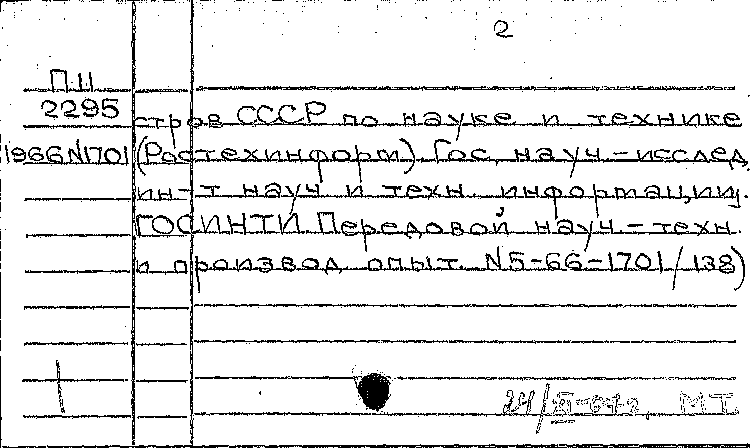 2
П 11
2295
1966 N1701
стров СССР по науке и технике
(Ростехинформ). Гос. науч-исслед.
ин-т науч и техн. информации.
ГОСИНТИ. Передовой науч-техн.
и производ опыт. N5-66-1701/138)
М.Т.